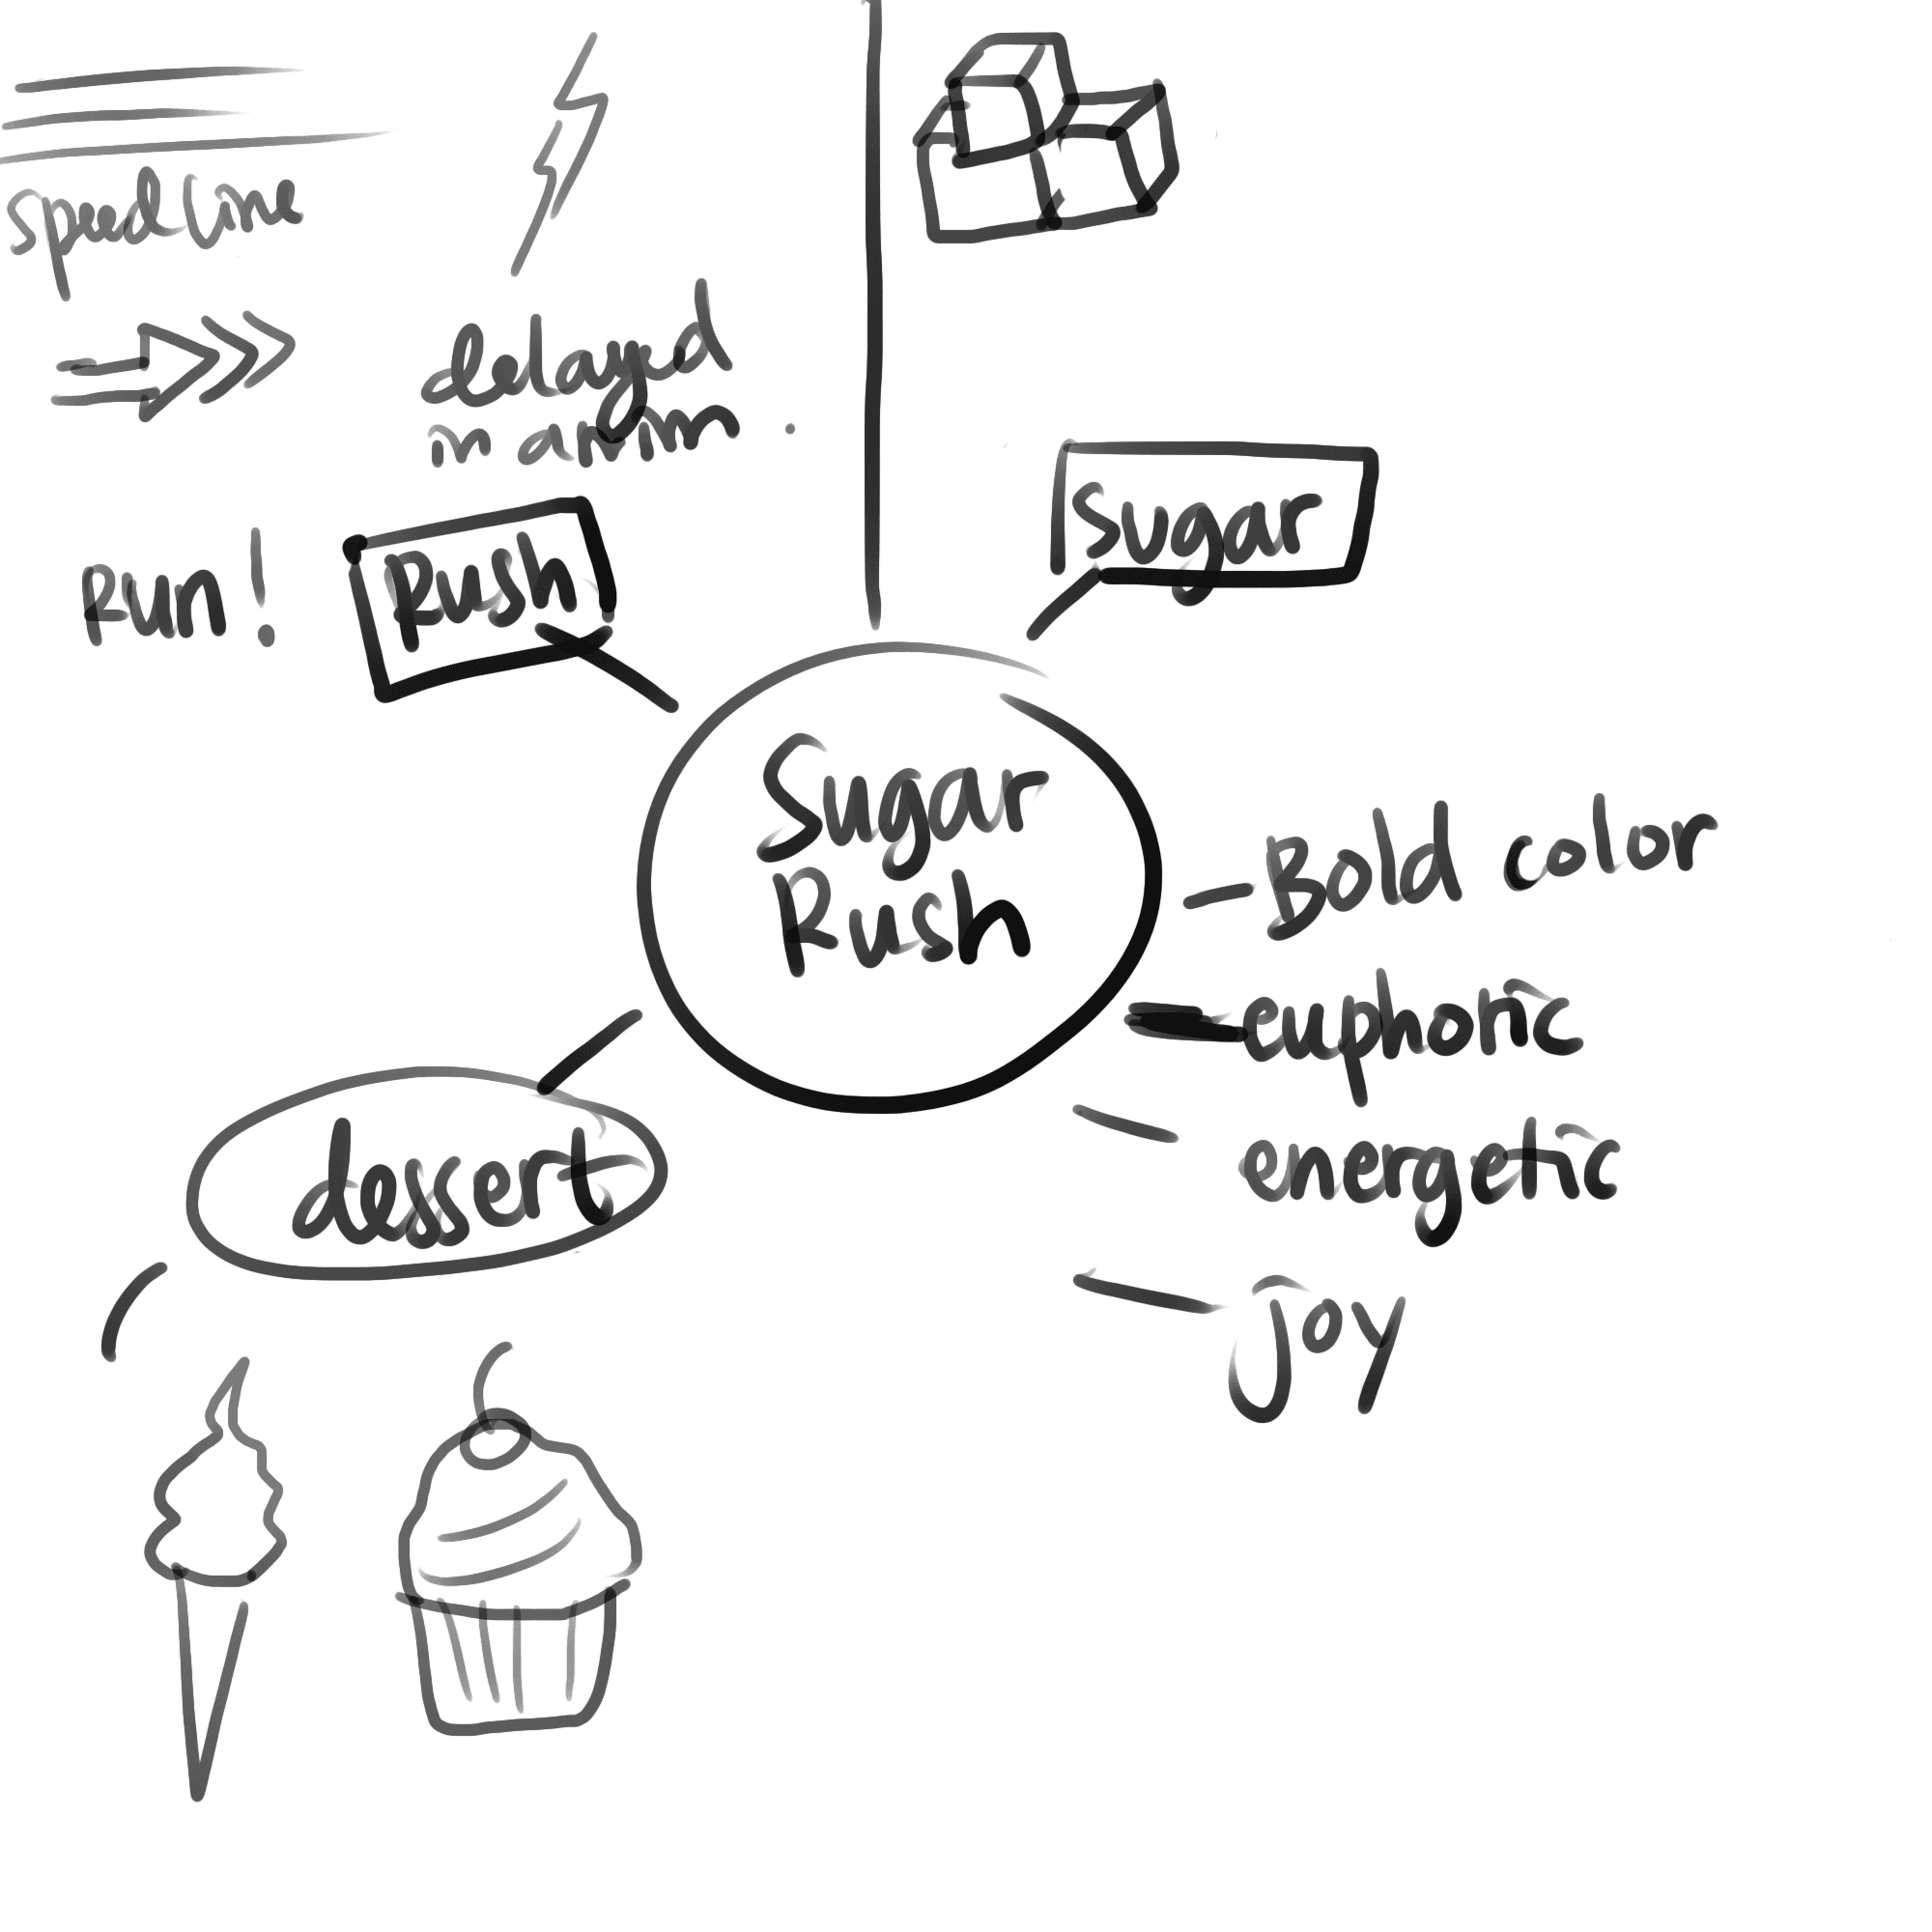 speedline
delayed
in anim
Run!
Rush
Sugar
Sugar
Rush
- Bold color
euphoric
energetic
joy
dessert